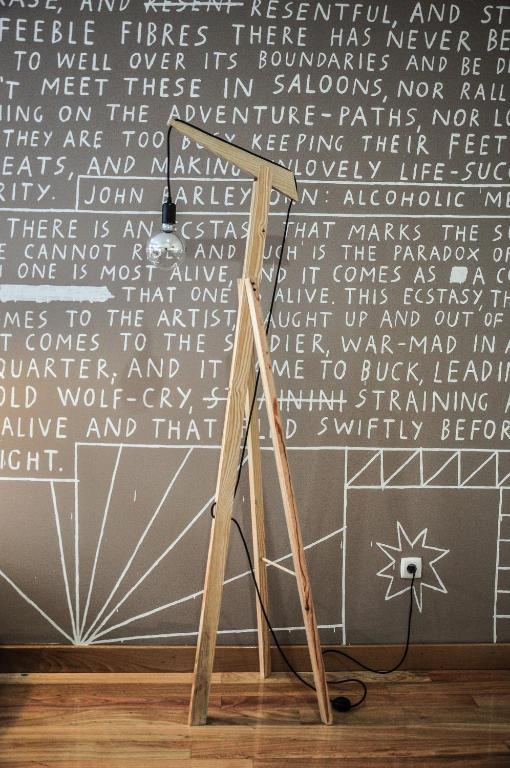 RESENT RESENTFUL, AND
FEEBLE FIBRES THERE HAS NEVER BE
TO WELL OVER ITS BOUNDARIES AND BE D
'T MEET THESE IN SALOONS, NOR RALL
ING ON THE ADVENTURE-PATHS, NOR LO
THEY ARE TOO BUSY KEEPING THEIR FEET
EATS, AND MAKING UNLOVELY LIFE-SUCC
RITY. JOHN BARLEYCORN: ALCOHOLIC ME
THERE IS AN ECSTASY THAT MARKS THE SU
E CANNOT RISE. AND SUCH IS THE PARADOX OF
ONE IS MOST ALIVE, AND IT COMES AS A CO
THAT ONE ALIVE. THIS ECSTASY, TH
MES TO THE ARTIST, CAUGHT UP AND OUT OF
T COMES TO THE SOLDIER, WAR-MAD IN A
QUARTER, AND IT CAME TO BUCK, LEADIN
OLD WOLF-CRY, STRAINING
ALIVE AND THAT FLED SWIFTLY BEFOR
IGHT.